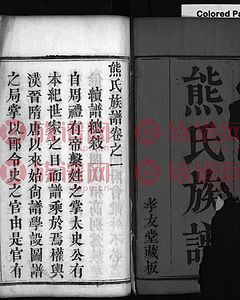 Colored Pa
熊氏族譜
孝友堂藏板
熊氏族譜卷之一
續譜總敘
自周禮有帝繫姓之掌太史公有
本紀世家之目而譜乘於焉權輿
漢晉隋唐以來始尚譜學設圖譜
之局掌以郎令史之官由是官有